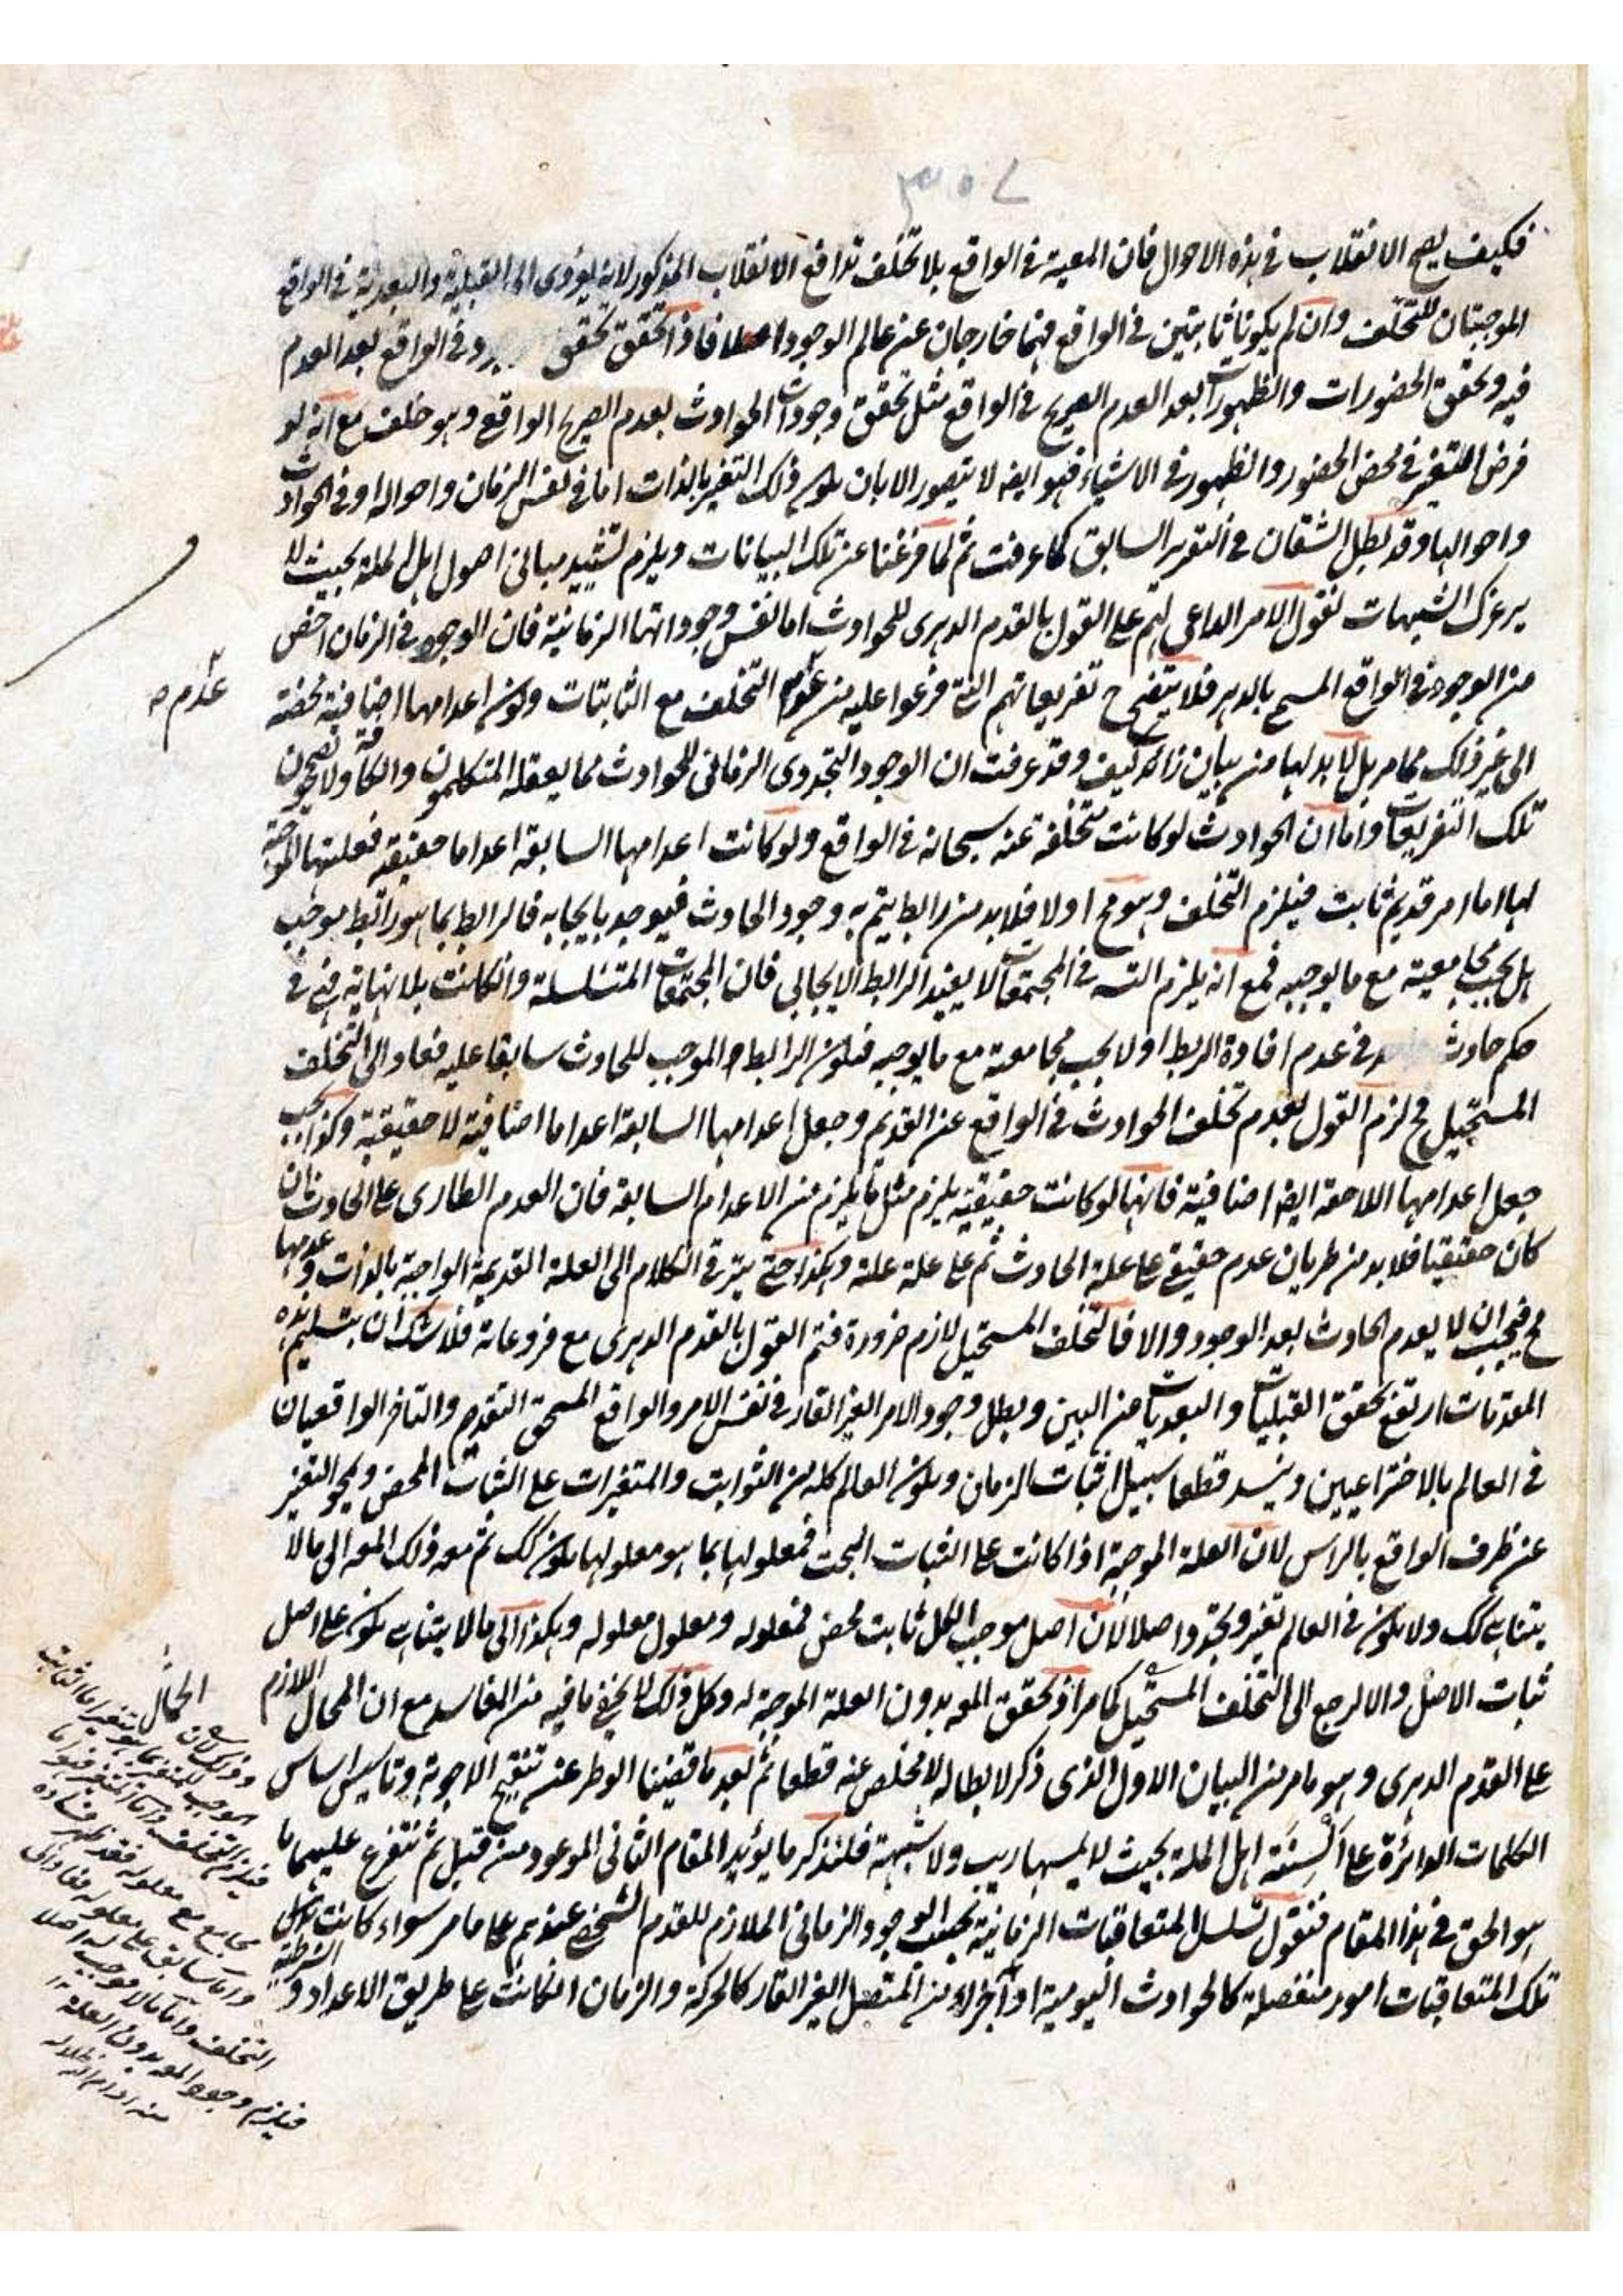 ٣٥٧
فكيف يصح الانقلاب في هذه الاحوال فان المعية في الواقع بلا تخلف تدافع الانقلاب المذكور لانه يؤدي الى القبلية والبعدية في الواقع
الموجبتان للتخلف وان لم يكونا ثابتين في الواقع فهما خارجان عن عالم الوجود فاذا تحقق تحقق في الواقع بعد العدم
فيه وتحقق الحضورات والظهورات بعد العدم الصريح في الواقع مثل تحقق وجودات الحوادث بعدم الصريح الواقع وهو خلف مع انه لو
فرض التغير في محض الحضور والظهور في الاشياء فهو ايضا لا يتصور الا بان يكون ذلك التغير بالذات اما في نفس الزمان واحواله او في الحوادث
واحوالها وقد بطل الشقان في التقرير السابق كما عرفت ثم لما فرغنا عن تلك البيانات ويلزم تشييد مباني اصول اهل الملة بحيث لا
الشبهات نقول الامر الداعي لهم على القول بالقدم الدهري للحوادث اما نفس وجوداتها الزمانية فان الوجود في الزمان اخص
من الوجود في الواقع المسمى بالدهر فلا يتضح ح تفريعاتهم التي فرعوا عليه من عدم التخلف مع الثابتات وكون اعدامها اضافية محضة
عدم صـ
الى غير ذلك مما مر بل لا بد لها من بيان زائد كيف وقد عرفت ان الوجود التجددي الزماني للحوادث مما يعقله المتكلمون والكافة ولا يصححون
تلك التفريعات واما ان الحوادث لو كانت متخلفة عنه سبحانه في الواقع ولو كانت اعدامها السابقة اعداما حقيقة فعلتها الموجبة
لها اما امر قديم ثابت فيلزم التخلف وهو مح او لا فلا بد من رابط يتم به وجود الحادث فيوجد بايجابه فالرابط بما هو رابط موجب
هل يجب مجامعيته مع ما يوجبه فمع انه يلزم التسـ في المجتمعات لا يفيد الرابط الايجابي فان المجتمعات المتسلسلة وان كانت بلا نهاية فهي في
حكم حادث في عدم افادة الربط او لا يجب مجامعته مع ما يوجبه فيكون الرابط والموجب للحادث سابقا عليه فعاد الى التخلف
المستحيل فح لزم القول بعدم تخلف الحوادث في الواقع عن القديم وجعل اعدامها السابقة اعداما اضافية لا حقيقية وكذا يجب
جعل اعدامها اللاحقة ايضا اضافية فانها لو كانت حقيقية يلزم مثل ما يلزم من الاعدام السابقة فان العدم الطاري على الحادث ان
كان حقيقيا فلا بد من طريان عدم حقيقي على علة الحادث ثم على علة علته وهكذا حتى يترقى الكلام الى العلة القديمة الواجبة بالذات وعدمها
مح فيجب ان لا يعدم الحادث بعد الوجود والا فالتخلف المستحيل لازم ضرورة فتم القول بالقدم الدهري مع فروعاته فلا شك ان بتسليم هذه
المقدمات ارتفع تحقق القبليات والبعديات من البين وبطل وجود الامر الغير القار في نفس الامر والواقع المسمى التقدم والتاخر الواقعيان
في العالم بالاختراعيين وينسد قطعا سبيل اثبات الزمان ويكون العالم كله من الثوابت والمتغيرات على الثبات المحض ويمحو التغير
عن ظرف الواقع بالراس لان العلة الموجبة اذا كانت على الثبات البحت فمعلولها بما هو معلولها يكون كك ثم معه ذلك المعه الى ما لا
يتناهى كك ولا يكون في العالم تغير وتجدد اصلا لان اصل موجب الكل ثابت محض فمعلوله ومعلول معلوله وهكذا الى ما لا يتناهى يكون على اصل
ثبات الاصل والا لرجع الى التخلف المستحيل كما مر اذ تحقق المعه بدون العلة الموجبة له وكل ذلك لا يخفى ما فيه من المفاسد مع ان المحال اللازم
على القدم الدهري وهو ما مر من البيان الاول الذي ذكر لابطاله لا مخلص عنه قطعا ثم بعد ما قضينا الوطر عن تنقيح الاجوبة وتاسيس اساس
الكلمات الدائرة على السنة اهل الملة بحيث لا يمسها ريب ولا شبهة فلنذكر ما يؤيد المقام الثاني الموعود من قبل ثم نتفرع عليهما ما
هو الحق في هذا المقام فنقول تسلسل المتعاقبات الزمانية بحسب الوجود الزماني الملازم للقدم الشخصي عندهم على ما مر سواء كانت
تلك المتعاقبات امور منفصلة كالحوادث اليومية او اجزاء من المتصل الغير القار كالحركة والزمان ان كانت على طريق الاعداد والشرطية
المحال
وذلك لان
الموجب للمتغير بما هو متغير اما الثابت
فيلزم التخلف واما المتغير فهو اما
مجامع مع معلوله فقد ظهر فساده
واما سابق على معلوله فعاد الى
التخلف واما لا موجب له اصلا
فيلزم وجود المعه بدون العلة ١٢
منه ادام الله ظلاله